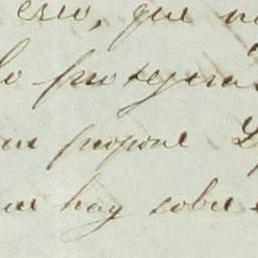 eso, que n
lo protegerá
ue propone
ue hay sobre